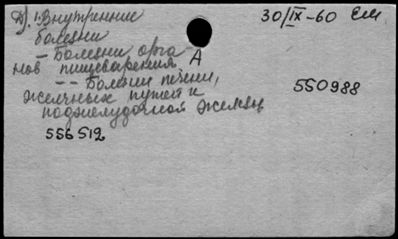 Д). 1. Внутренние 30/IX-60 Ем
болезни
- Болезни орга-
нов пищеварения A
-- Болезни печени,
желчных путей и 550988
поджелудочной железы
556512